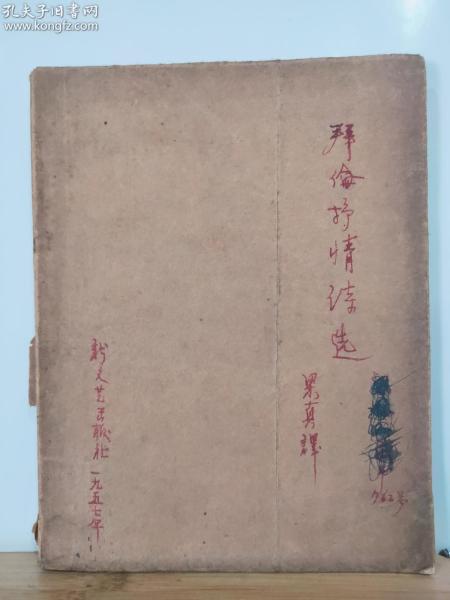 孔夫子旧书网
www.kongfz.com
拜倫抒情诗选
梁真譯
新文艺出版社 一九五七年